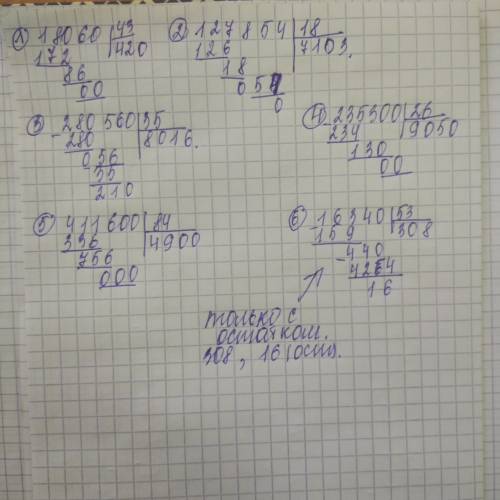 1) 18060 | 43
172 | 420
86
00
2) 127854 | 18
126 | 7103.
18
054
0
3) -280560 | 35
280 | 8016.
056
35
210
4) -235300 | 26
234 | 9050
130
00
5) 411600 | 84
336 | 4900
756
000
6) -16340 | 53
159 | 308
-440
424
16
только с
остатком.
308, 16(ост).